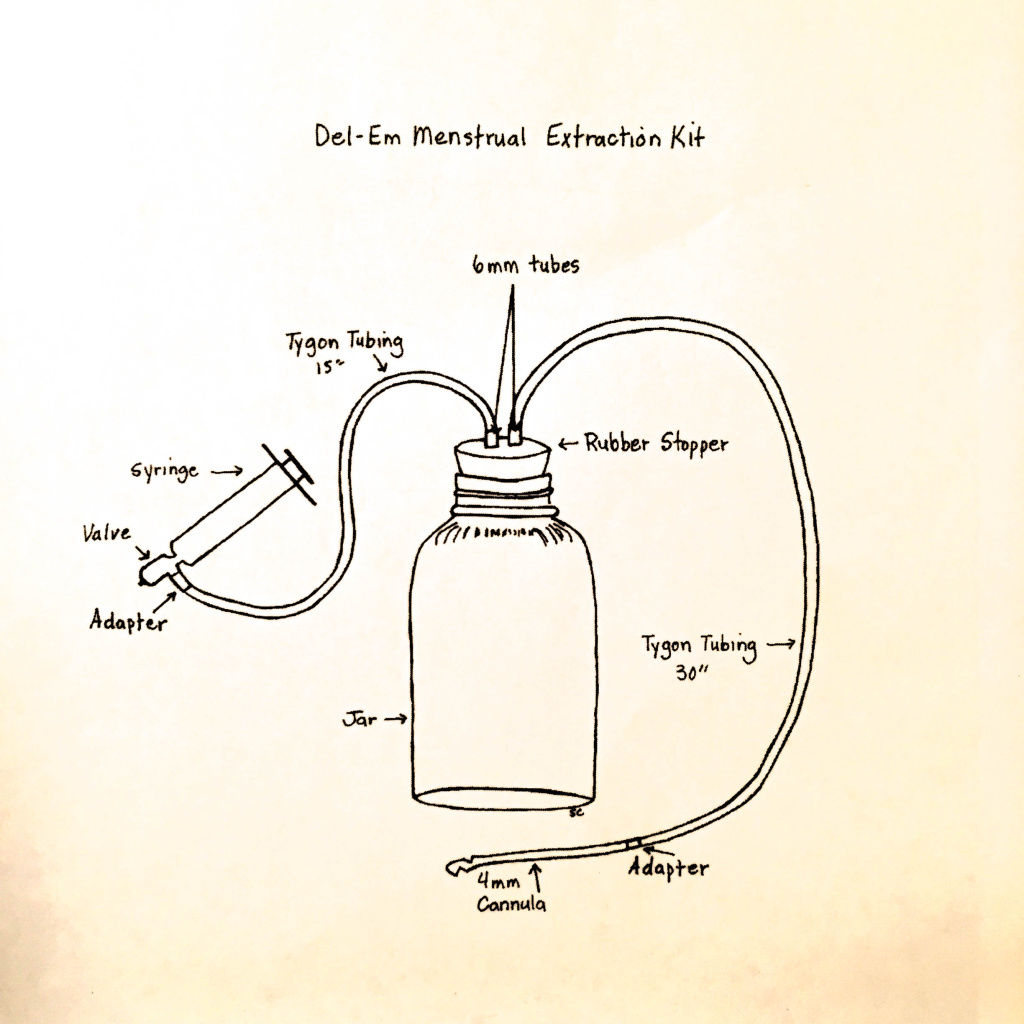 Del-Em Menstrual Extraction Kit
6mm tubes
Tygon Tubing
15"
Rubber Stopper
Syringe
Valve
Adapter
Tygon Tubing
30"
Jar
sc
Adapter
4mm
Cannula